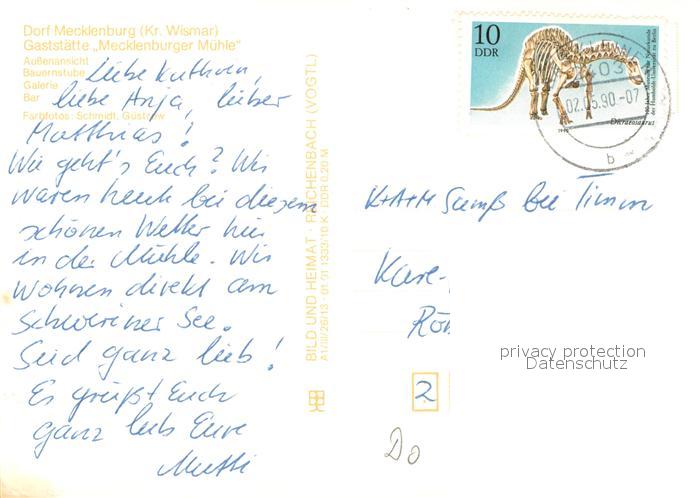 Dorf Mecklenburg (Kr. Wismar)
Gaststätte „Mecklenburger Mühle"
Außenansicht
Bauernstube
Galerie
Bar
Farbfotos: Schmidt, Güstrow
Liebe Kathrin,
liebe Anja, lieber
Matthias!
Wie geht's Euch? Wir
waren heute bei diesem
schönen Wetter hier
in der Mühle. Wir
wohnen direkt am
Schweriner See.
Seid ganz lieb!
Es grüßt Euch
ganz lieb Eure
Mutti
BILD UND HEIMAT · REICHENBACH (VOGTL)
A1/III/26/13 · 01 01 1333/10 K · DDR 0,20 M
10
DDR
Dicraeosaurus
1990
02.05.90-07
b
K+A+M bei Timm
2
Do
privacy protection
Datenschutz